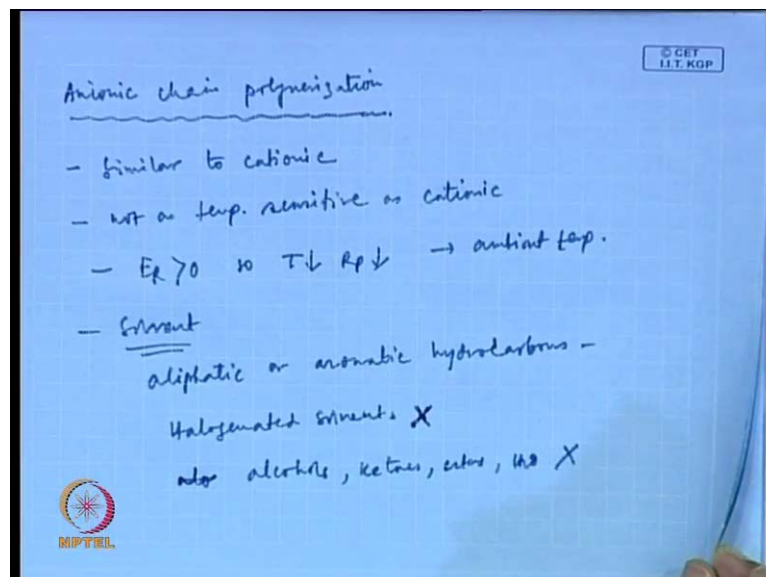 © CET
I.I.T. KGP
Anionic chain polymerization
- Similar to cationic
- not as temp. sensitive as cationic
- ER >0 so T↓ Rp↓ → ambient temp.
- Solvent
aliphatic or aromatic hydrocarbons -
Halogenated solvent. X
alcohols, ketones, esters, X
NPTEL